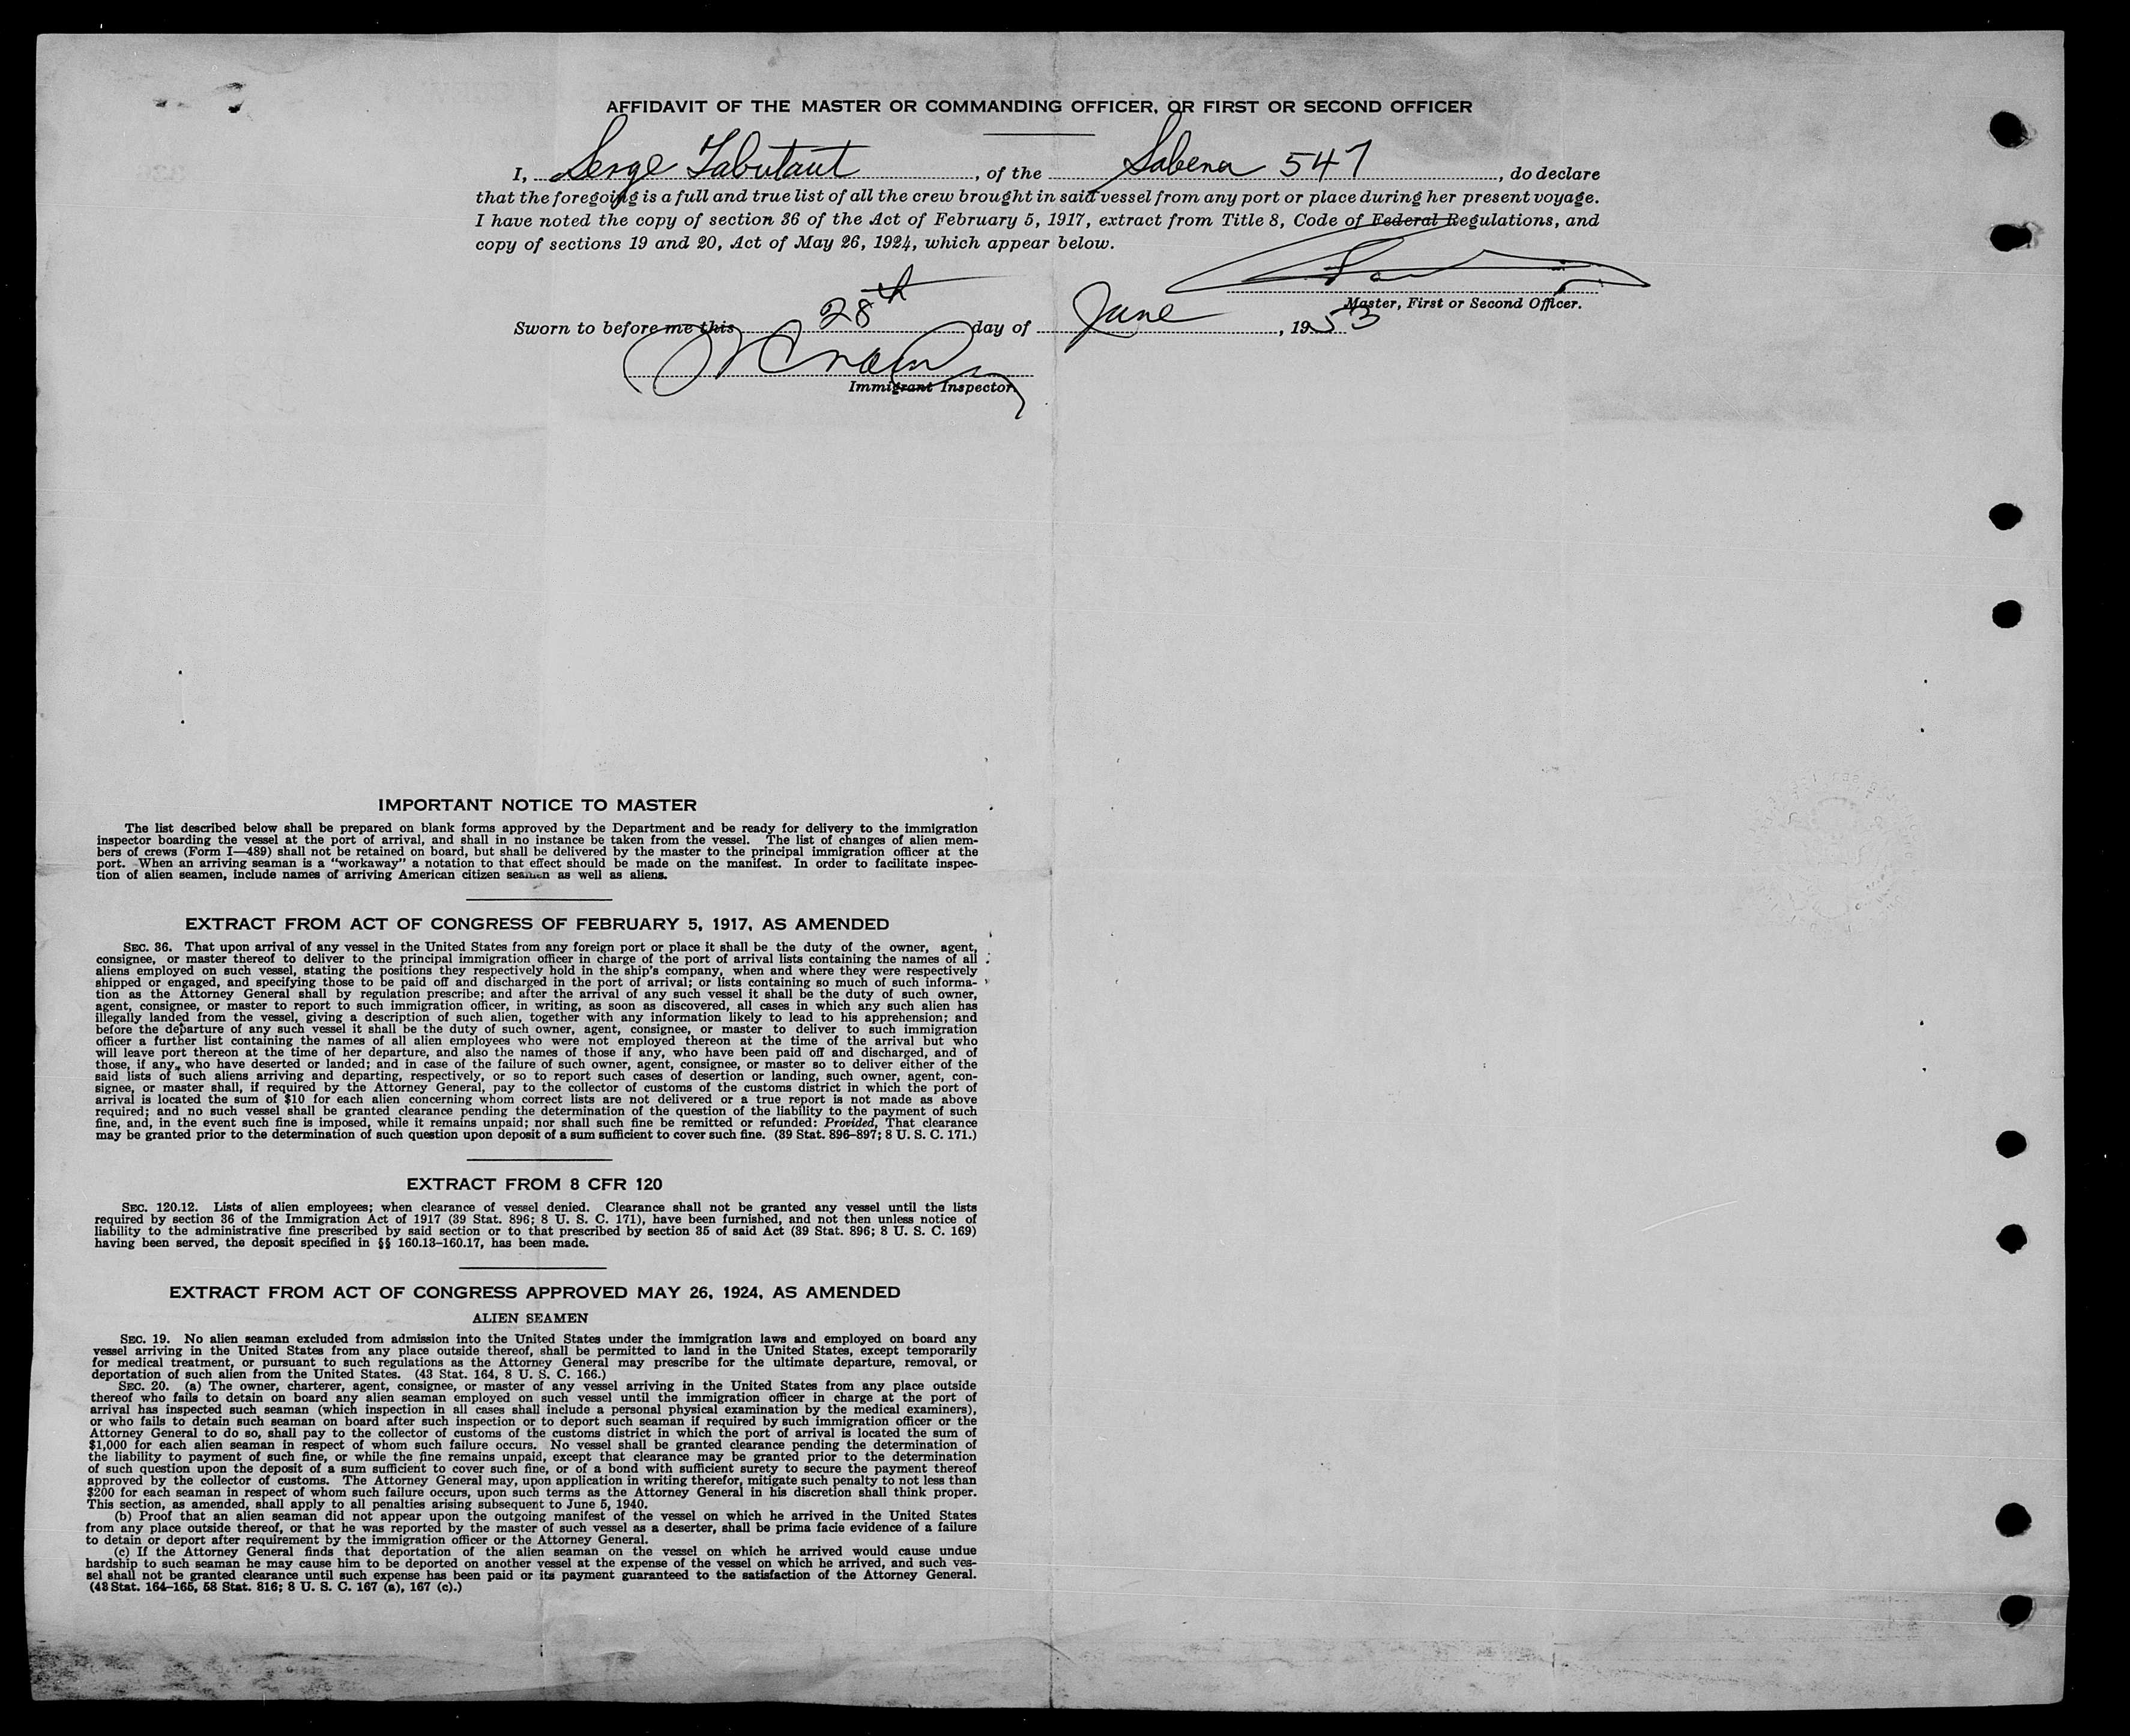 AFFIDAVIT OF THE MASTER OR COMMANDING OFFICER, OR FIRST OR SECOND OFFICER
I, Serge Tabutaut, of the Sabena 547, do declare
that the foregoing is a full and true list of all the crew brought in said vessel from any port or place during her present voyage.
I have noted the copy of section 36 of the Act of February 5, 1917, extract from Title 8, Code of Federal Regulations, and
copy of sections 19 and 20, Act of May 26, 1924, which appear below.
Master, First or Second Officer.
Sworn to before me this 28th day of June, 1953
Immigrant Inspector.
IMPORTANT NOTICE TO MASTER
The list described below shall be prepared on blank forms approved by the Department and be ready for delivery to the immigration
inspector boarding the vessel at the port of arrival, and shall in no instance be taken from the vessel. The list of changes of alien mem-
bers of crews (Form I—489) shall not be retained on board, but shall be delivered by the master to the principal immigration officer at the
port. When an arriving seaman is a "workaway" a notation to that effect should be made on the manifest. In order to facilitate inspec-
tion of alien seamen, include names of arriving American citizen seamen as well as aliens.
EXTRACT FROM ACT OF CONGRESS OF FEBRUARY 5, 1917, AS AMENDED
SEC. 36. That upon arrival of any vessel in the United States from any foreign port or place it shall be the duty of the owner, agent,
consignee, or master thereof to deliver to the principal immigration officer in charge of the port of arrival lists containing the names of all
aliens employed on such vessel, stating the positions they respectively hold in the ship's company, when and where they were respectively
shipped or engaged, and specifying those to be paid off and discharged in the port of arrival; or lists containing so much of such informa-
tion as the Attorney General shall by regulation prescribe; and after the arrival of any such vessel it shall be the duty of such owner,
agent, consignee, or master to report to such immigration officer, in writing, as soon as discovered, all cases in which any such alien has
illegally landed from the vessel, giving a description of such alien, together with any information likely to lead to his apprehension; and
before the departure of any such vessel it shall be the duty of such owner, agent, consignee, or master to deliver to such immigration
officer a further list containing the names of all alien employees who were not employed thereon at the time of the arrival but who
will leave port thereon at the time of her departure, and also the names of those if any, who have been paid off and discharged, and of
those, if any, who have deserted or landed; and in case of the failure of such owner, agent, consignee, or master so to deliver either of the
said lists of such aliens arriving and departing, respectively, or so to report such cases of desertion or landing, such owner, agent, con-
signee, or master shall, if required by the Attorney General, pay to the collector of customs of the customs district in which the port of
arrival is located the sum of $10 for each alien concerning whom correct lists are not delivered or a true report is not made as above
required; and no such vessel shall be granted clearance pending the determination of the question of the liability to the payment of such
fine, and, in the event such fine is imposed, while it remains unpaid; nor shall such fine be remitted or refunded: Provided, That clearance
may be granted prior to the determination of such question upon deposit of a sum sufficient to cover such fine. (39 Stat. 896–897; 8 U. S. C. 171.)
EXTRACT FROM 8 CFR 120
SEC. 120.12. Lists of alien employees; when clearance of vessel denied. Clearance shall not be granted any vessel until the lists
required by section 36 of the Immigration Act of 1917 (39 Stat. 896; 8 U. S. C. 171), have been furnished, and not then unless notice of
liability to the administrative fine prescribed by said section or to that prescribed by section 35 of said Act (39 Stat. 896; 8 U. S. C. 169)
having been served, the deposit specified in §§ 160.13–160.17, has been made.
EXTRACT FROM ACT OF CONGRESS APPROVED MAY 26, 1924, AS AMENDED
ALIEN SEAMEN
SEC. 19. No alien seaman excluded from admission into the United States under the immigration laws and employed on board any
vessel arriving in the United States from any place outside thereof, shall be permitted to land in the United States, except temporarily
for medical treatment, or pursuant to such regulations as the Attorney General may prescribe for the ultimate departure, removal, or
deportation of such alien from the United States. (43 Stat. 164, 8 U. S. C. 166.)
SEC. 20. (a) The owner, charterer, agent, consignee, or master of any vessel arriving in the United States from any place outside
thereof who fails to detain on board any alien seaman employed on such vessel until the immigration officer in charge at the port of
arrival has inspected such seaman (which inspection in all cases shall include a personal physical examination by the medical examiners),
or who fails to detain such seaman on board after such inspection or to deport such seaman if required by such immigration officer or the
Attorney General to do so, shall pay to the collector of customs of the customs district in which the port of arrival is located the sum of
$1,000 for each alien seaman in respect of whom such failure occurs. No vessel shall be granted clearance pending the determination of
the liability to payment of such fine, or while the fine remains unpaid, except that clearance may be granted prior to the determination
of such question upon the deposit of a sum sufficient to cover such fine, or of a bond with sufficient surety to secure the payment thereof
approved by the collector of customs. The Attorney General may, upon application in writing therefor, mitigate such penalty to not less than
$200 for each seaman in respect of whom such failure occurs, upon such terms as the Attorney General in his discretion shall think proper.
This section, as amended, shall apply to all penalties arising subsequent to June 5, 1940.
(b) Proof that an alien seaman did not appear upon the outgoing manifest of the vessel on which he arrived in the United States
from any place outside thereof, or that he was reported by the master of such vessel as a deserter, shall be prima facie evidence of a failure
to detain or deport after requirement by the immigration officer or the Attorney General.
(c) If the Attorney General finds that deportation of the alien seaman on the vessel on which he arrived would cause undue
hardship to such seaman he may cause him to be deported on another vessel at the expense of the vessel on which he arrived, and such ves-
sel shall not be granted clearance until such expense has been paid or its payment guaranteed to the satisfaction of the Attorney General.
(43 Stat. 164–165, 58 Stat. 816; 8 U. S. C. 167 (a), 167 (c).)